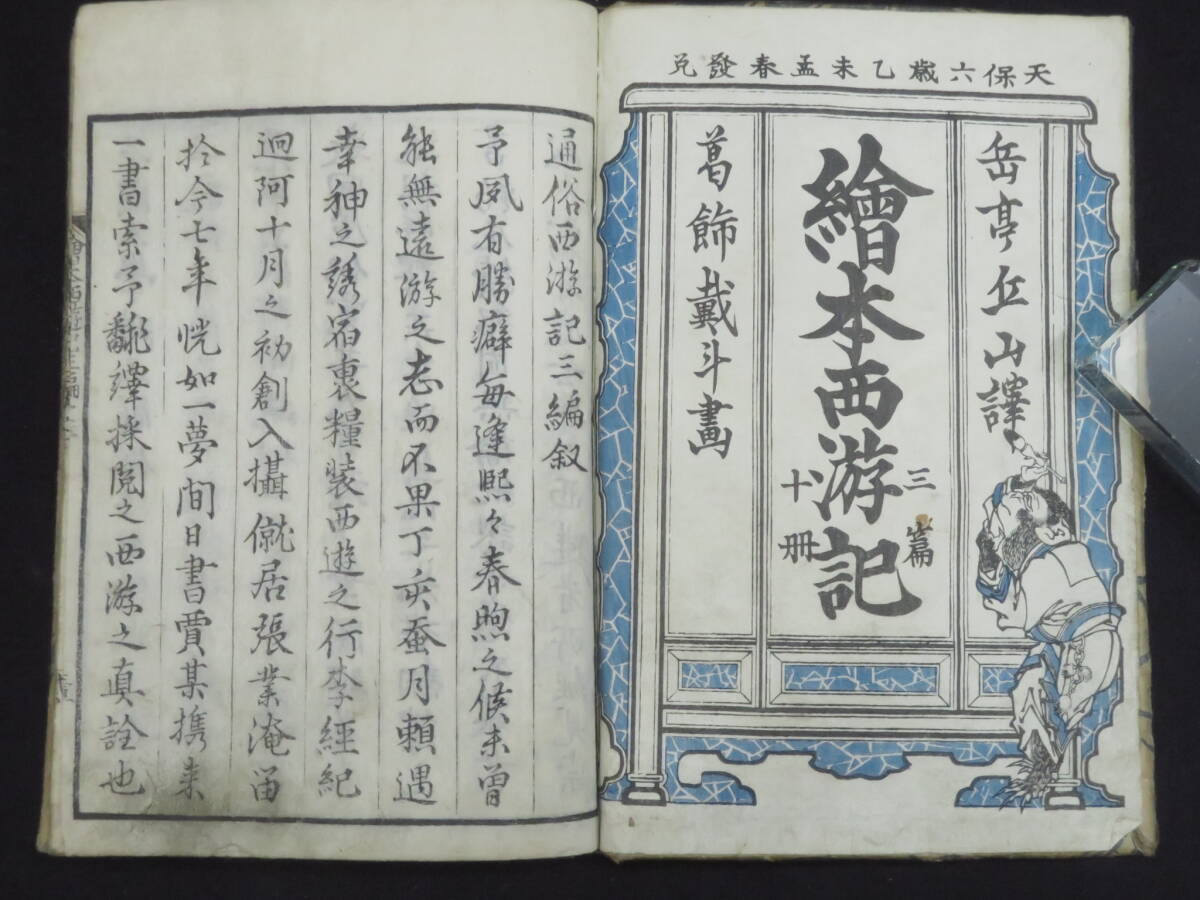 天保六歳乙未孟春發兌
岳亭丘山譯
繪本西游記
三篇
十冊
葛飾戴斗畫
通俗西游記三編叙
予夙有勝癖毎逢熙々春煦之候未曽
能無遠游之志而不果丁亥蚕月頼遇
幸神之誘宿裹糧装西遊之行李經紀
迴阿十月之初創入攝僦居張業淹留
於今七年恍如一夢間日書賈某携来
一書索予飜繹採閲之西游之真詮也